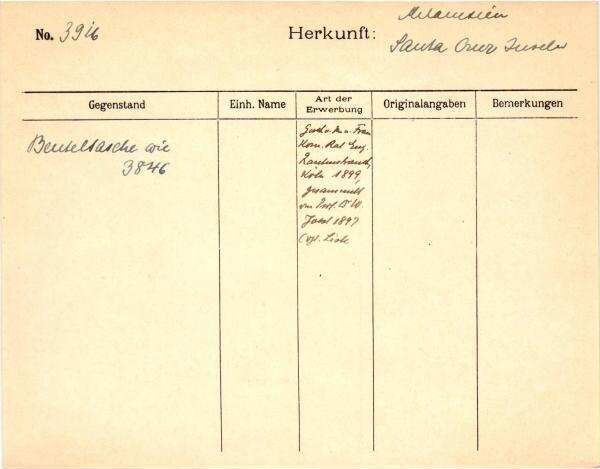 No. 3916
Herkunft: Melanesien
Santa Cruz Inseln
Gegenstand
Einh. Name
Art der
Erwerbung
Originalangaben
Bemerkungen
Beuteltasche wie
3846
Gesch. v. Frau
Kom. Rat Eug.
Rautenstrauch,
Köln 1899,
gesammelt
von Prof. D W.
Joest 1897
(vgl. Liste